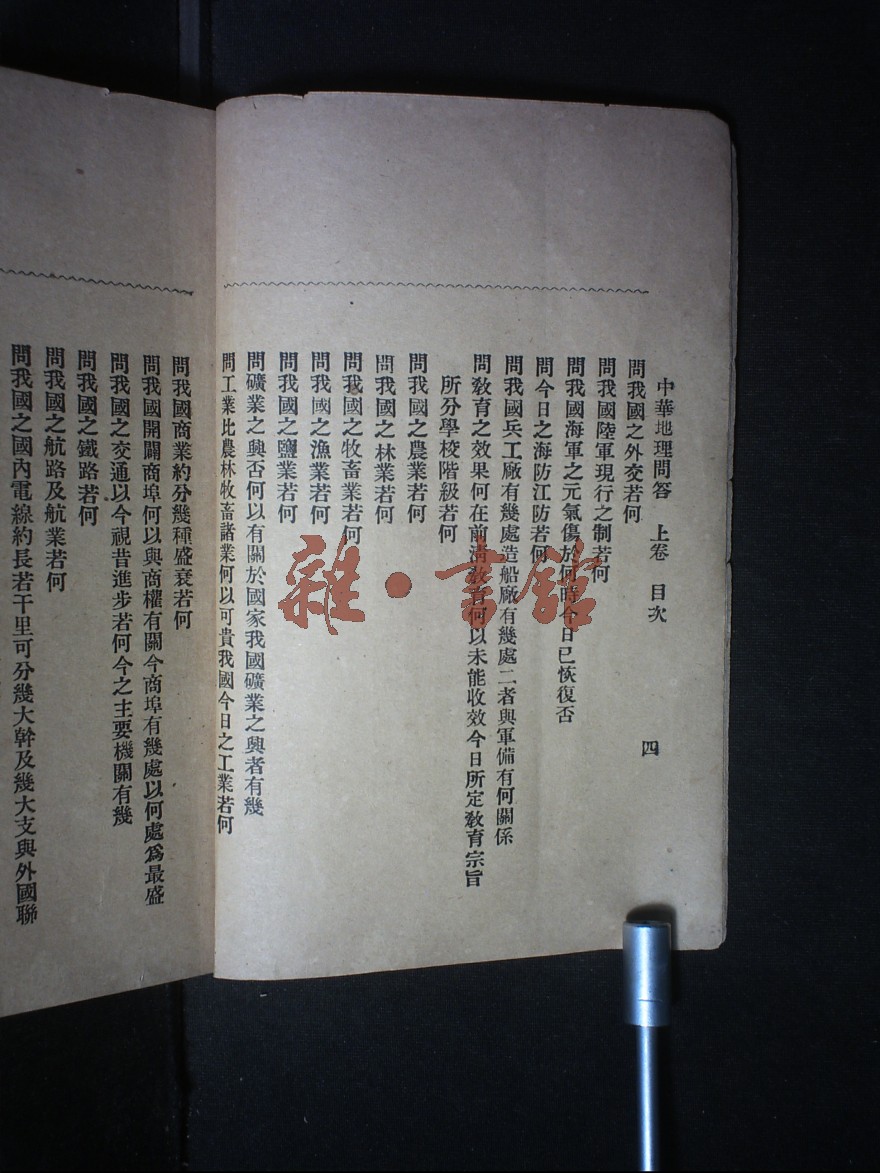 中華地理問答 上卷 目次 四
問我國之外交若何
問我國陸軍現行之制若何
問我國海軍之元氣傷於何時今日已恢復否
問今日之海防江防若何
問我國兵工廠有幾處造船廠有幾處二者與軍備有何關係
問教育之效果何在前淸教育何以未能收效今日所定教育宗旨
所分學校階級若何
問我國之農業若何
問我國之林業若何
問我國之牧畜業若何
問我國之漁業若何
問我國之鹽業若何
問礦業之興否何以有關於國家我國礦業之興者有幾
問工業比農林牧畜諸業何以可貴我國今日之工業若何
問我國商業約分幾種盛衰若何
問我國開闢商埠何以與商權有關今商埠有幾處以何處爲最盛
問我國之交通以今視昔進步若何今之主要機關有幾
問我國之鐵路若何
問我國之航路及航業若何
問我國之國內電線約長若干里可分幾大幹及幾大支與外國聯
雜·書館